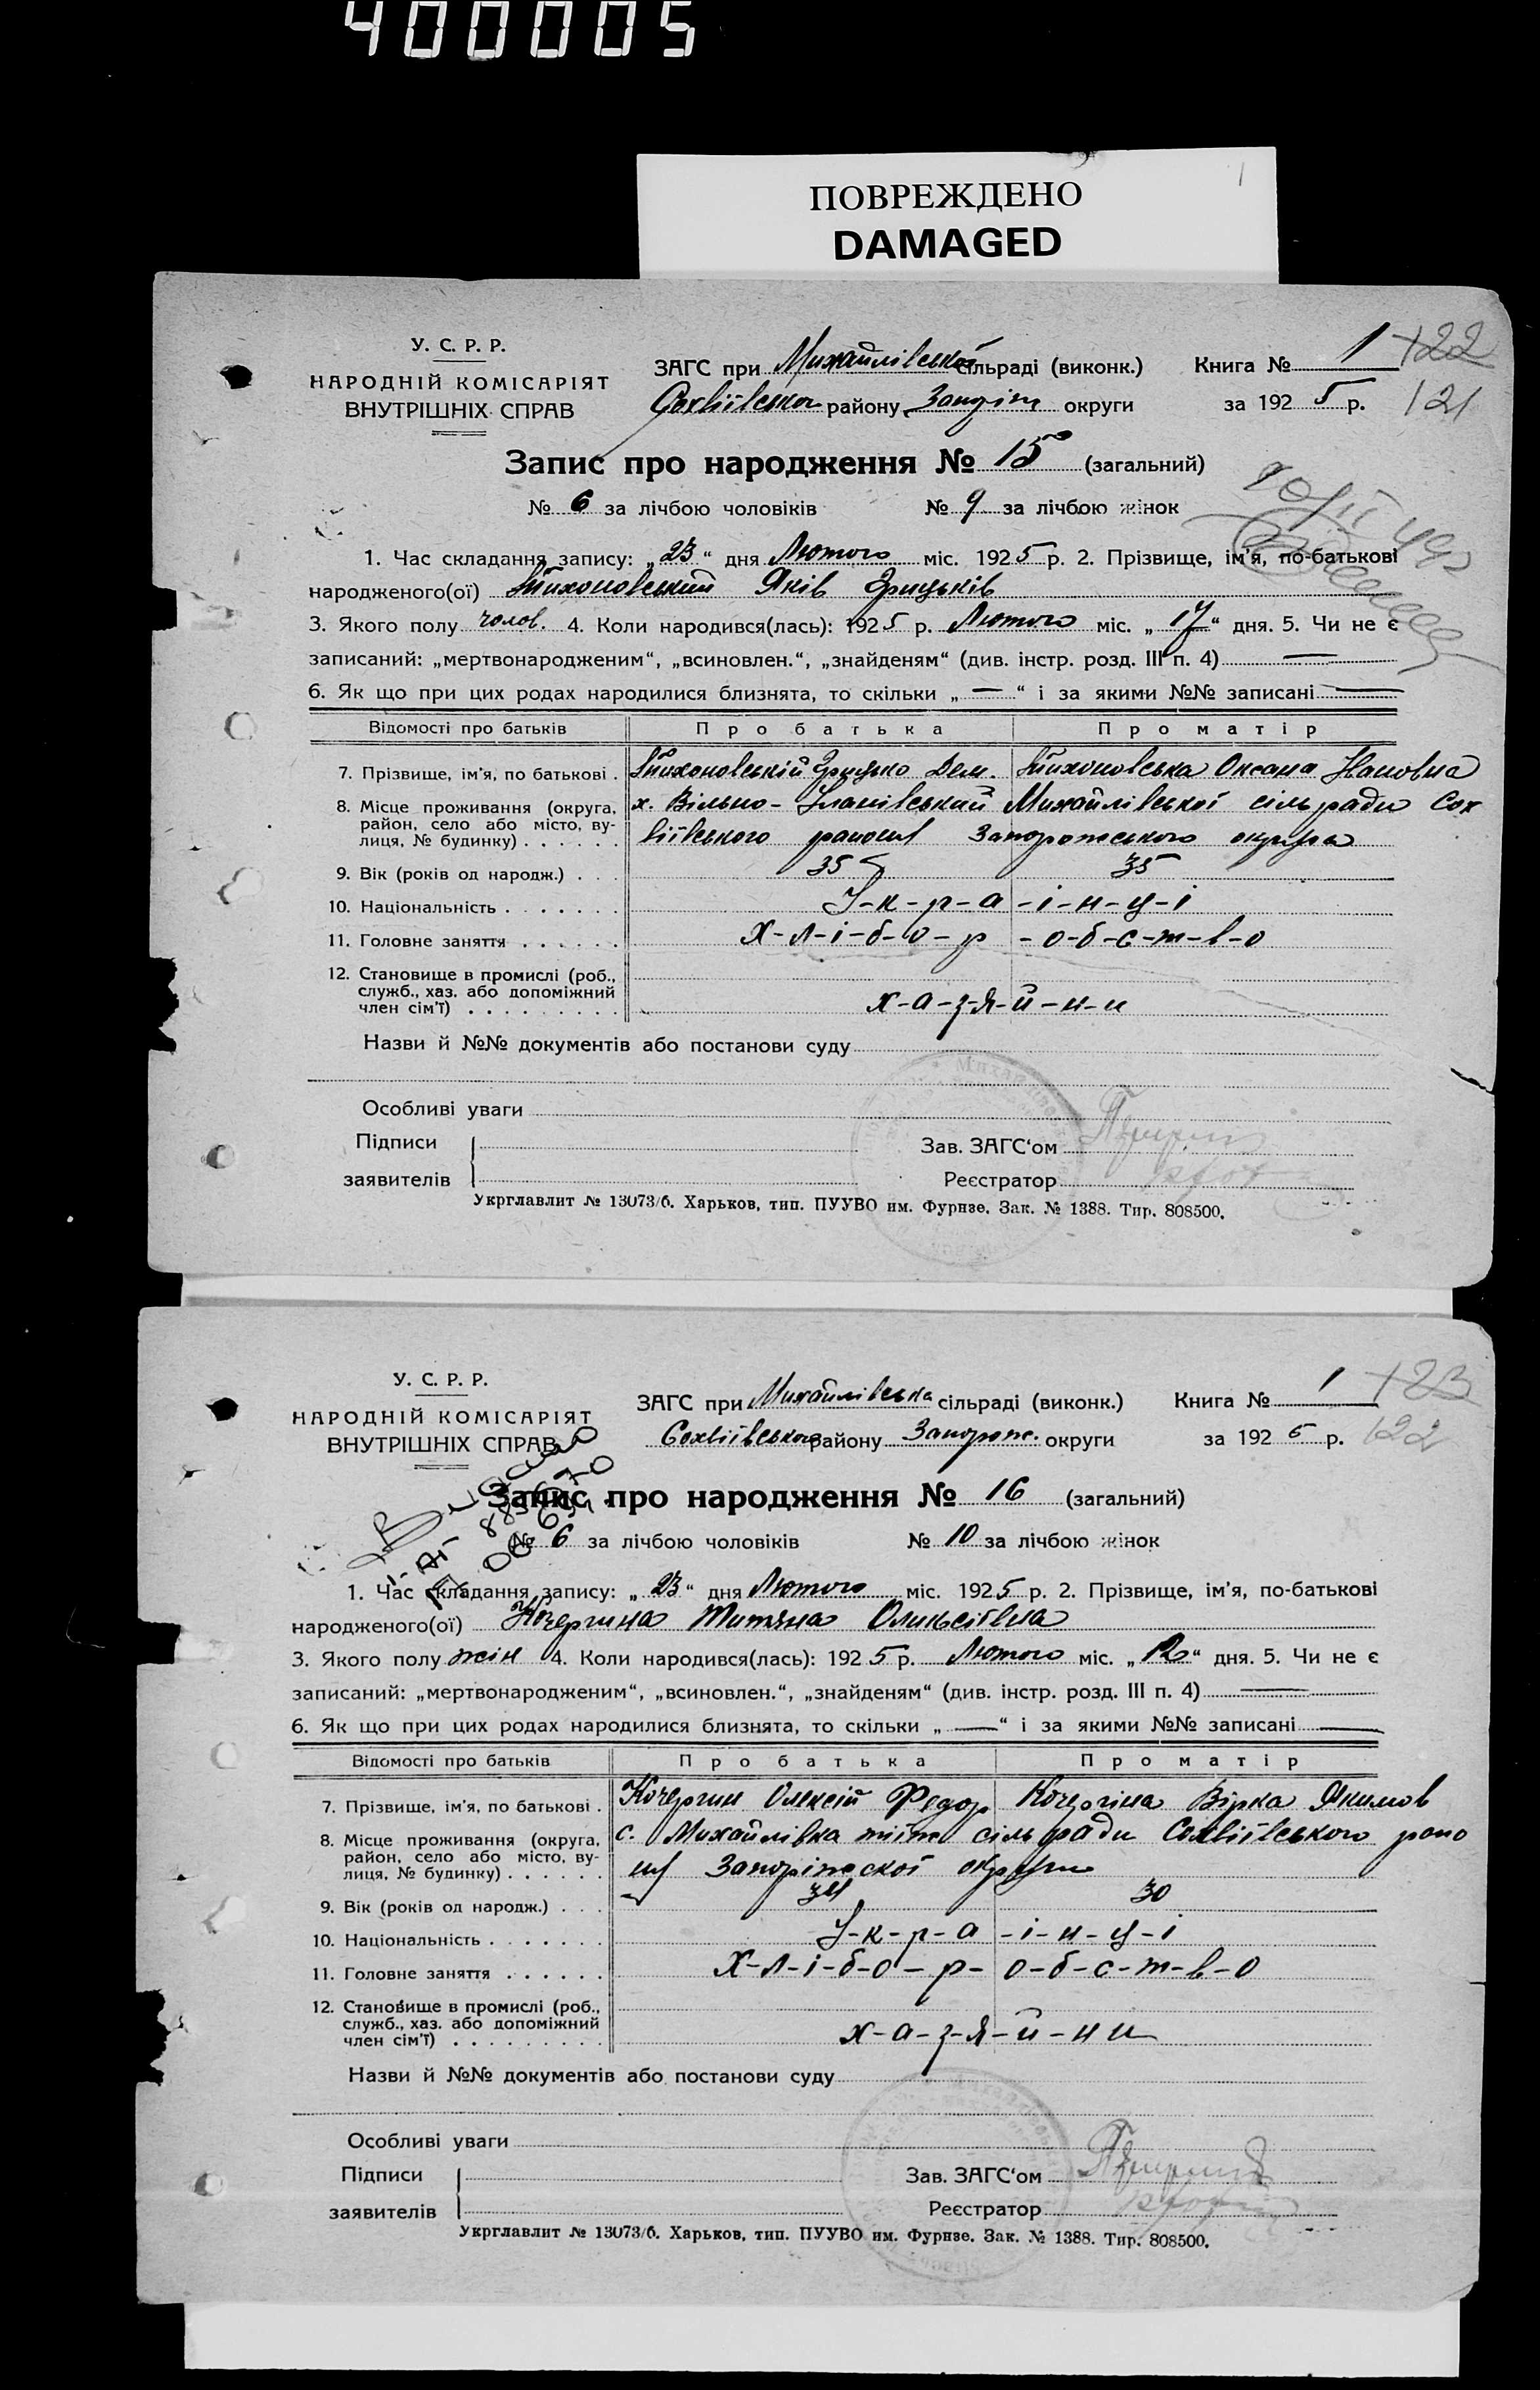 400005
ПОВРЕЖДЕНО
DAMAGED
У. С. Р. Р.
НАРОДНІЙ КОМІСАРІЯТ
ВНУТРІШНІХ СПРАВ
ЗАГС при Михайлівської сільраді (виконк.) Книга № 1 122
району округи за 1925 р. 121
Запис про народження № 15 (загальний)
№ 6 за лічбою чоловіків № 9 за лічбою жінок
1. Час складання запису: „23“ дня Лютого міс. 1925 р. 2. Прізвище, ім'я, по-батькові
народженого(ої) Тихоновський Яків Грицьків
3. Якого полу чолов. 4. Коли народився(лась): 1925 р. Лютого міс. „17“ дня. 5. Чи не є
записаний: „мертвонародженим“, „всиновлен.“, „знайденям“ (див. інстр. розд. III п. 4) —
6. Як що при цих родах народилися близнята, то скільки „—“ і за якими №№ записані —
Відомості про батьків Про батька Про матір
7. Прізвище, ім'я, по батькові . Тихоновській Грицько Дем. Тихоновська Оксана
8. Місце проживання (округа, район, село або місто, вулиця, № будинку) . . . . . . х. Вільно- Михайлівської сільради Сох
віївського Запорожського округы
9. Вік (років од народж.) . . . 35 35
10. Національність . . . . . . . У-к-р-а -і-н-ц-і
11. Головне заняття . . . . . . Х-л-і-б-о-р -о-б-с-т-в-о
12. Становище в промислі (роб., служб., хаз. або допоміжний член сім'ї) . . . . . . . . . х-а-з-я-й-н-и
Назви й №№ документів або постанови суду
Особливі уваги
Підписи
заявителів
Зав. ЗАГС'ом
Реєстратор
Укрглавлит № 13073/б. Харьков, тип. ПУУВО им. Фурнзе. Зак. № 1388. Тир. 808500.
У. С. Р. Р.
НАРОДНІЙ КОМІСАРІЯТ
ВНУТРІШНІХ СПРАВ
ЗАГС при Михайлівська сільраді (виконк.) Книга № 1 123
Сохвіївського району Запорож. округи за 1925 р. 122
Запис про народження № 16 (загальний)
№ 6 за лічбою чоловіків № 10 за лічбою жінок
1. Час складання запису: „23“ дня Лютого міс. 1925 р. 2. Прізвище, ім'я, по-батькові
народженого(ої) Кочергина Титяна Оликсіівна
3. Якого полу жін 4. Коли народився(лась): 1925 р. Лютого міс. „12“ дня. 5. Чи не є
записаний: „мертвонародженим“, „всиновлен.“, „знайденям“ (див. інстр. розд. III п. 4) —
6. Як що при цих родах народилися близнята, то скільки „—“ і за якими №№ записані —
Відомості про батьків Про батька Про матір
7. Прізвище, ім'я, по батькові . Кочергин Олексій Федор Кочергіна Вірка Якимов
8. Місце проживання (округа, район, село або місто, вулиця, № будинку) . . . . . . с. Михайлівка сільради Сохвіївського
Запоріжскої округи
9. Вік (років од народж.) . . . 34 30
10. Національність . . . . . . . У-к-р-а -і-н-ц-і
11. Головне заняття . . . . . . Х-л-і-б-о-р- о-б-с-т-в-о
12. Становище в промислі (роб., служб., хаз. або допоміжний член сім'ї) . . . . . . . . . х-а-з-я-й-н-и
Назви й №№ документів або постанови суду
Особливі уваги
Підписи
заявителів
Зав. ЗАГС'ом
Реєстратор
Укрглавлит № 13073/б. Харьков, тип. ПУУВО им. Фурнзе. Зак. № 1388. Тир. 808500.